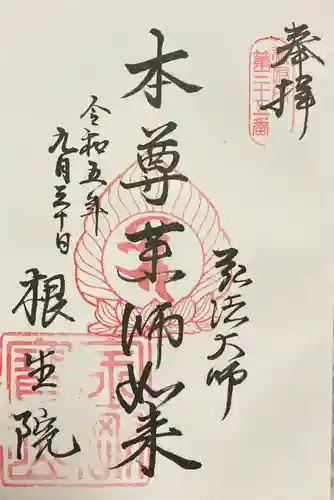 奉拝
第三十五番
本尊薬師如来
弘法大師
令和五年
九月三十日
根生院